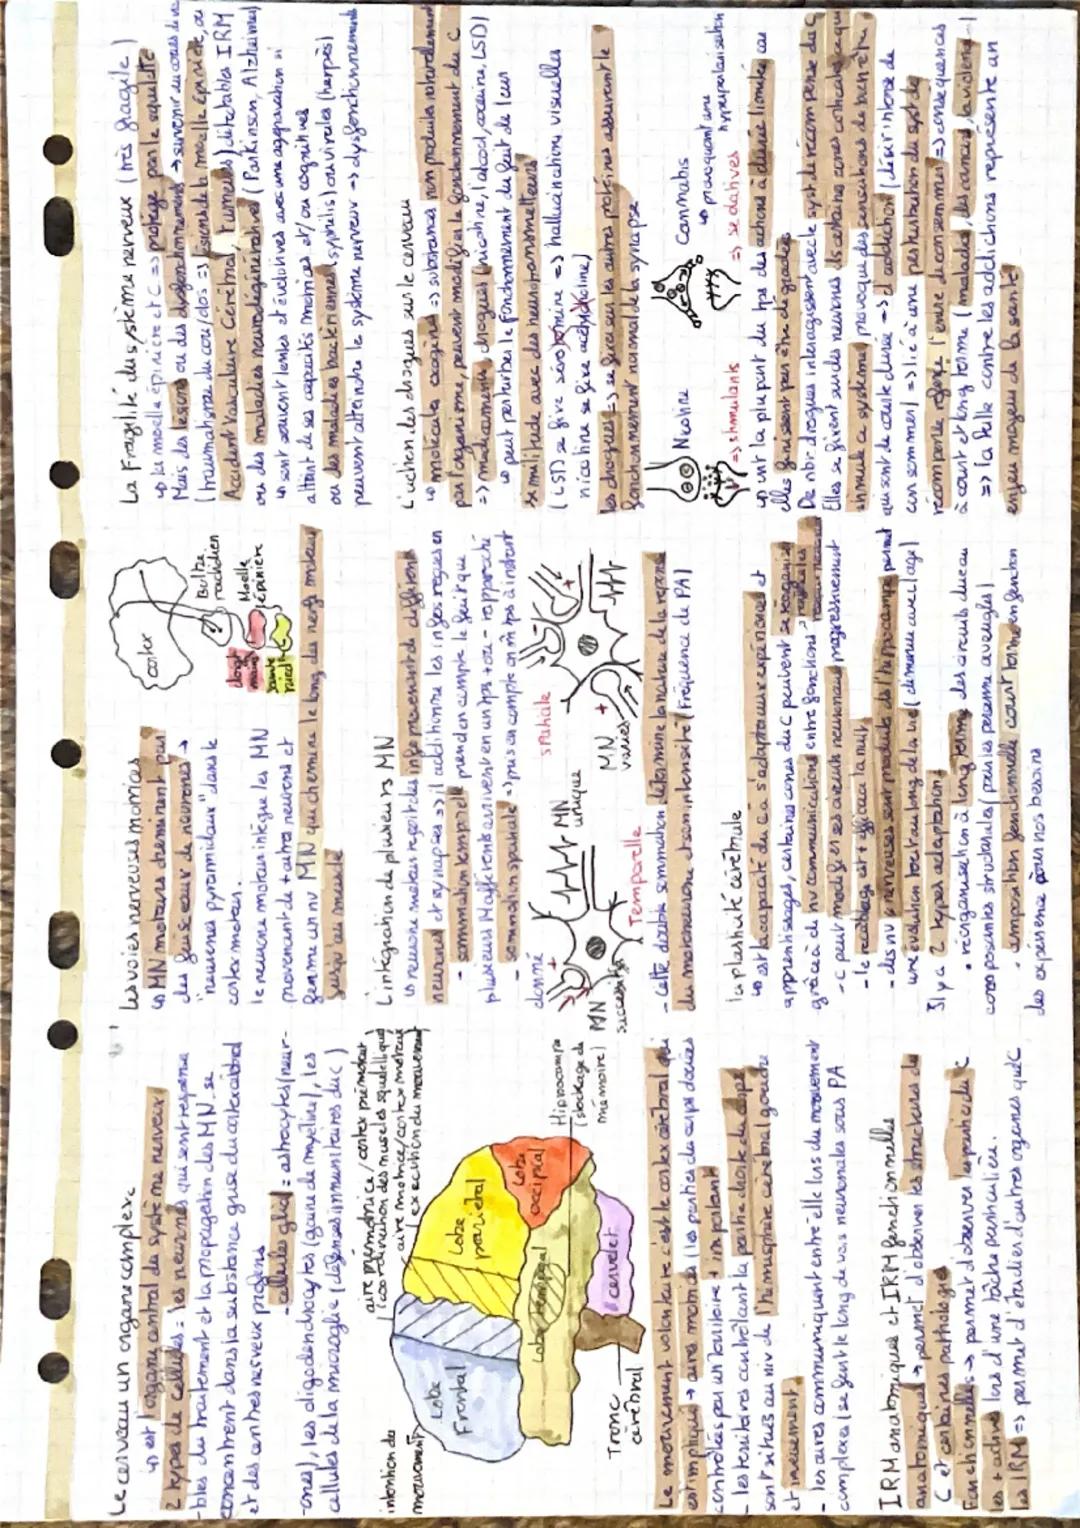 Le cerveau un organe complexe
↳ est l'organe central du système nerveux
2 types de cellules = les neurones qui sont responsa
-bles du traitement et la propagation des MN. se
concentrent dans la substance grise du cortex cérébral
et des centres nerveux profonds
- cellules gliales = astrocytes (neur-
-ones), les oligodendrocytes (gaine de myéline), les
cellules de la microglie (défenses immunitaires du C)
aire prémotrice / cortex prémoteur
(coordination des muscles squelettiques)
aire motrice / cortex moteur
(exécution du mouvement
intention du
mouvement
Lobe
Frontal
Lobe
pariétal
Lobe
occipital
Lobe temporal
cervelet
Tronc
cérébral
Hippocampe
(stockage de
mémoire)
Le mouvement volontaire c'est le cortex cérébral qui
est impliqué → aires motrices (les parties du corps douées
contrôlées par un territoire + important
- les territoires contrôlant la partie droite du corps
sont situés au niv de l'hémisphère cérébral gauche
et inversement.
- les aires communiquent entre elle lors du mouvement
complexe (se font le long de voies neuronales sous PA
IRM anatomiques et IRM fonctionnelles
anatomiques → permet d'observer les structures du
C et certaines pathologies
Fonctionnelles → permet d'observer les parties du C
les + actives lors d'une tâche particulière.
les IRM => permet d'étudier d'autres organes que C
Les voies nerveuses motrices
↳ MN moteurs cheminent par
des faisceaux de neurones →
"neurones pyramidaux" dans le
cortex moteur.
le neurone moteur intègre les MN
provenant de + autres neurones et
forme un nv MN qui chemine le long des nerfs moteurs
jusqu'au muscle
cortex
Bulbe
rachidien
Moelle
épinière
doigt
main
L'intégration de plusieurs MN
↳ neurone moteur reçoit des infos provenant de différents
neurones et synapses => il additionne les infos reçues en
- sommation temporelle prend en compte le fait que
plusieurs M afférents arrivent en un tps + ou - rapproché
- sommation spatiale => pris en compte en m̂ tps à instant
donné
MN
successifs
Temporelle
MN
unique
spatiale
MN
variés
- Cette double sommation détermine la nature de la réponse
du motoneurone et son intensité (Fréquence de PA)
la plasticité cérébrale
↳ est la capacité du C à s'adapter aux expériences et
apprentissages, certaines zones du C peuvent se réorganiser
grâce à de nv communications entre fonctions
- C peut modifier ses circuits neuronaux progressivement
- le recâblage est + efficace la nuit
- des nv C nerveuses sont produits ds l'hippocampe permet
une évolution tout au long de la vie (diminue avec l'âge)
Il y a 2 types adaptations
• réorganisation à long terme des circuits due au
composantes structurales (pour les personne aveugles)
• composition fonctionnelle court terme en fonction
des expérience pour nos besoins
La Fragilité du système nerveux (très fragile)
↳ la moelle épinière et C => protégé par le squelette
Mais des lésions ou des dysfonctionnements → survenir au cours de vie
(traumatisme du cou/dos => lésions de la moelle épinière, ou
Accident Vasculaire Cérébral, tumeurs) détectables IRM
ou des maladies neurodégénératives (Parkinson, Alzheimer)
↳ sont souvent lentes et évolutives avec une aggravation si
attent de ses capacités motrices et/ou cognitives
ou des maladies bactériennes (syphilis) ou virales (herpès)
peuvent atteindre le système nerveux => dysfonctionnements
L'action des drogues sur le cerveau
↳ molécules exogènes => substances non produites naturellement
par l'organisme, peuvent modifier le fonctionnement du C
=> médicaments, drogues (nicotine, l'alcool, cocaïne, LSD)
↳ peut perturber le fonctionnement du fait de leur
similitude avec des neurotransmetteurs
(LSD se fixe sérotonine => hallucinations visuelles
nicotine se fixe acétylcholine)
les drogues => se fixer sur les autres protéines assurent le
fonctionnement normal de la synapse
Nicotine
=> stimulants
Cannabis
↳ provoquant une
hyperpolarisation
=> sédatives
↳ ont la plupart du tps des actions à durée limitée car
elles finissent par être dégradées
De nbr drogues interagissent avec le syst de récompense du C
Elles se fixent sur des neurones ds certaines zones corticales qui
stimule ce système, provoque des sensations de bien-être
qui sont de courte durée => d'addiction (désir intense de
consommer) => lié à une perturbation du syst de
récompense => l'envie de consommer => conséquences
à court et long terme (maladies, des cancers, la violence...)
=> la lutte contre les addictions représente un
enjeu majeur de santé